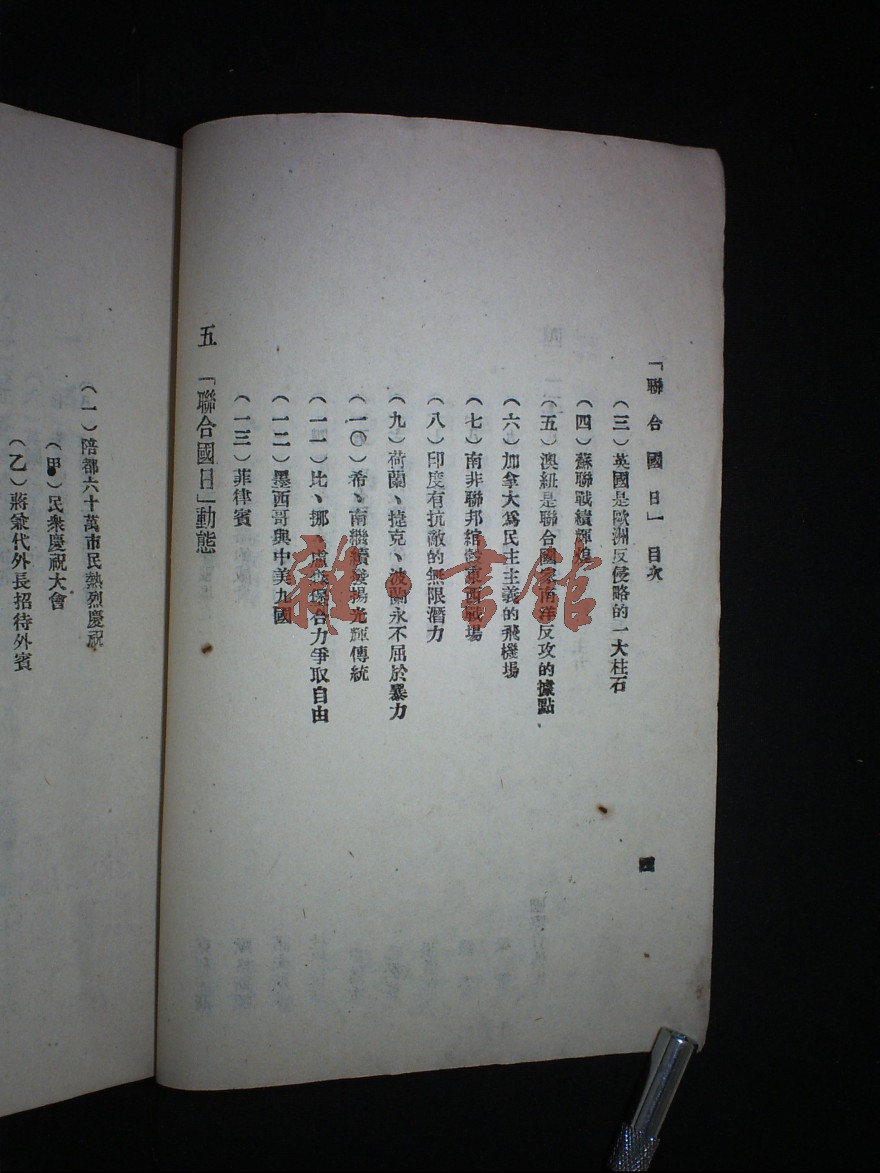 「聯合國日」目次
四
(三)英國是歐洲反侵略的一大柱石
(四)蘇聯戰績輝煌
(五)澳紐是聯合國家南洋反攻的據點
(六)加拿大爲民主主義的飛機場
(七)南非聯邦綰轂東西戰場
(八)印度有抗敵的無限潛力
(九)荷蘭、捷克、波蘭永不屈於暴力
(一〇)希、南繼續發揚光輝傳統
(一一)比、挪、盧森堡合力爭取自由
(一二)墨西哥與中美九國
(一三)菲律賓
五 「聯合國日」動態
(一)陪都六十萬市民熱烈慶祝
(甲)民衆慶祝大會
(乙)蔣兼代外長招待外賓
雜·書館